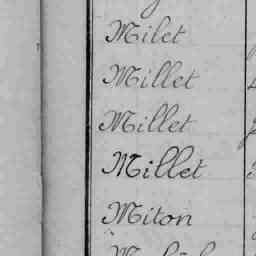 Milet
Millet
Millet
Millet
Miton